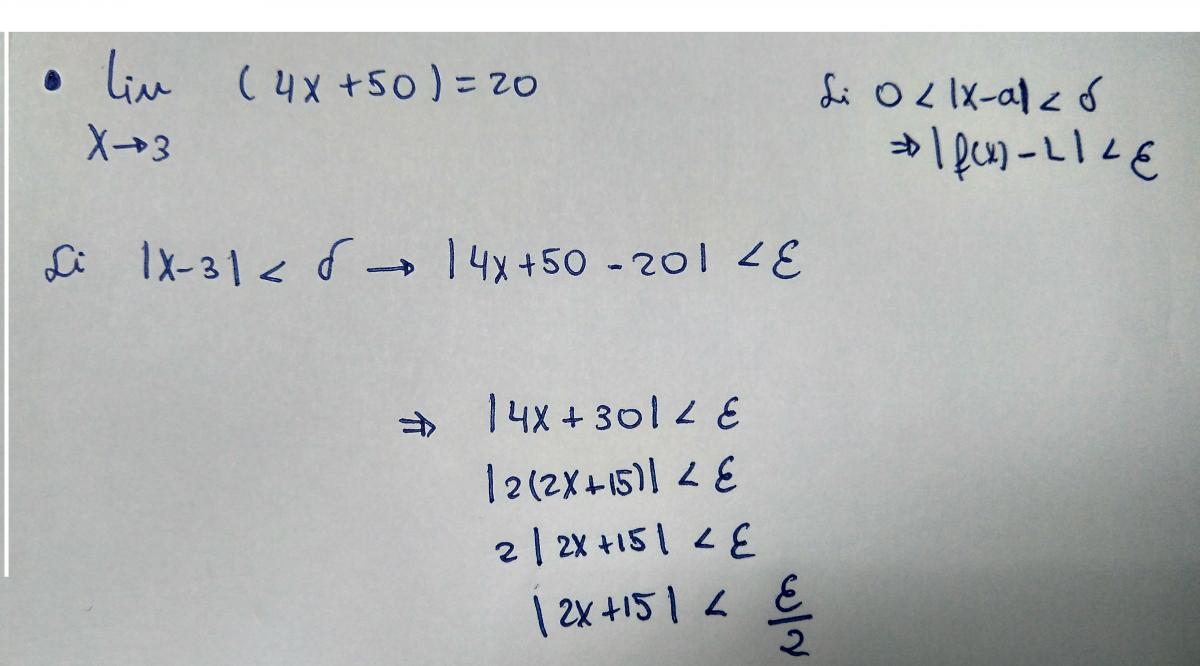 • lim (4x+50)=20
x→3
Si 0<|x-a|<δ
⇒|f(x)-L|<ε
Si |x-3|<δ → |4x+50-20|<ε
⇒ |4x+30|<ε
|2(2x+15)|<ε
2|2x+15|<ε
|2x+15|<ε/2